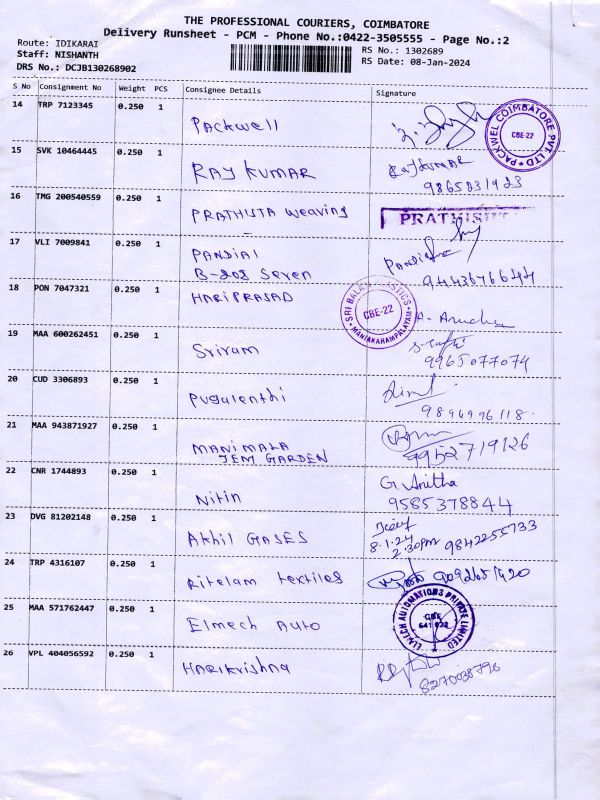 THE PROFESSIONAL COURIERS, COIMBATORE
Delivery Runsheet - PCM - Phone No.:0422-3505555 - Page No.:2
Route: IDIKARAI
Staff: NISHANTH
DRS No.: DCJB130268902
RS No.: 1302689
RS Date: 08-Jan-2024
S No Consignment No Weight PCS Consignee Details Signature
14 TRP 7123345 0.250 1 Packwell
PACKWEL COIMBATORE PVT. LTD CBE-22
15 SVK 10464445 0.250 1 RAJ KUMAR
16 TMG 200540559 0.250 1 PRATHISTA weaving
17 VLI 7009841 0.250 1 PANDIAI
B-208 Seven
18 PON 7047321 0.250 1 HARIPRASAD
SRI BALAJI PLASTICS CBE-22 MANIAKARAMPALAYAM
19 MAA 600262451 0.250 1 Sriram
9965077074
20 CUD 3306893 0.250 1 Pugalenthi
21 MAA 943871927 0.250 1 MANIMALA
JEM GARDEN
9952719126
22 CNR 1744893 0.250 1 Nitin
G. Anitha
9585378844
23 DVG 81202148 0.250 1 Akhil GASES
8.1.24
2.30pm 9842255733
24 TRP 4316107 0.250 1 Ritelam textiles
25 MAA 571762447 0.250 1 Elmech Auto
ELMECH AUTOMATIONS PRIVATE LIMITED CBE 641 022
26 VPL 404056592 0.250 1 HARIKrishna
8270038796